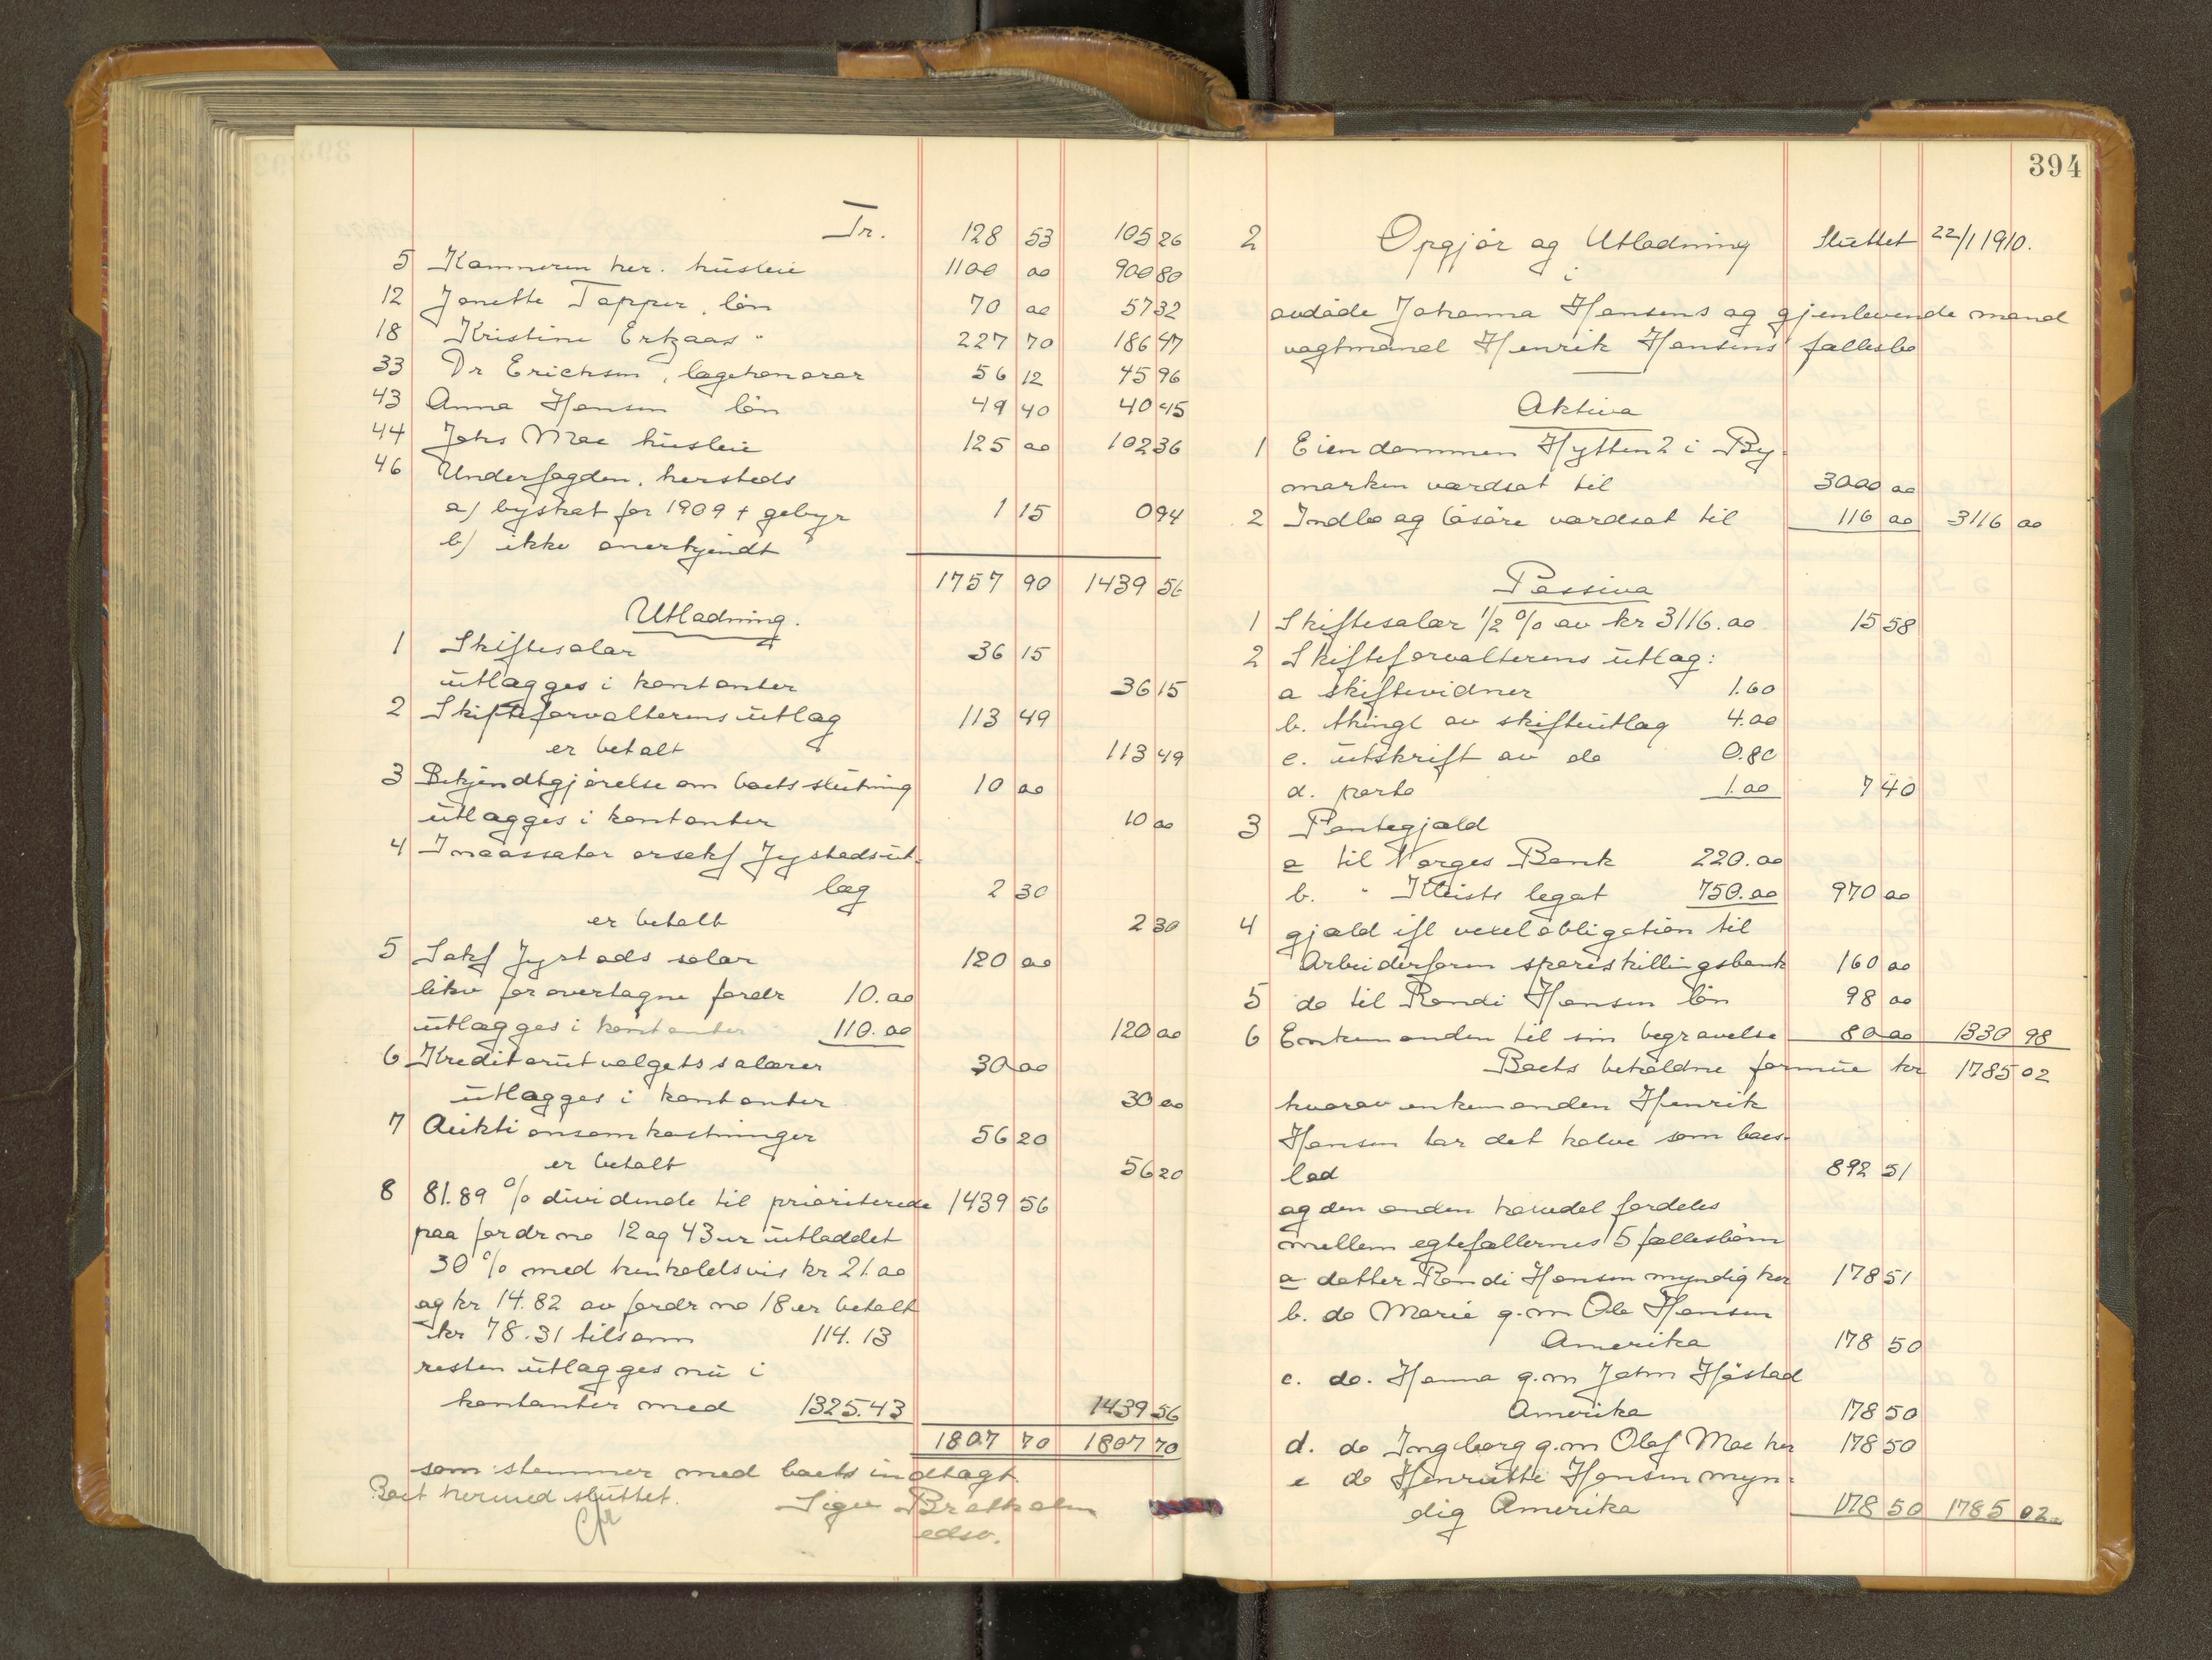 Tr. 128 53 105 26
5 Kamneren her. husleie 1100 00 900 80
12 Janette Tapper, løn 70 00 57 32
18 Kristine Erkaas " 227 70 186 47
33 Dr Erichsen, lægehonorar 56 12 45 96
43 Anna Hansen løn 49 40 40 45
44 Johs Moe husleie 125 00 102 36
46 Underfogden, hersteds
a) byskat for 1909 + gebyr 1 15 0 94
b) ikke anerkjendt
1757 90 1439 56
Utlodning.
1 Skiftesalær 36 15
utlægges i kontanter 36 15
2 Skifteforvalterens utlæg 113 49
er betalt 113 49
3 Bekjendtgjørelse om boets slutning 10 00
utlægges i kontanter 10 00
4 Incassator orsakf Jystads ut-
læg 2 30
er betalt 2 30
5 Sakf Jystads salær 120 00
likv for overtagne fordr 10.00
utlægges i kontanter 110.00 120 00
6 Kreditorutvalgets salærer 30 00
utlægges i kontanter 30 00
7 Auktionsomkostninger 56 20
er betalt 56 20
8 81.89 % dividende til prioriterede 1439 56
paa fordr no 12 og 43 er utloddet
30 % med henholdsvis kr 21.00
og kr 14.82 av fordr no 18 er betalt
kr 78.31 tilsam 114.13
resten utlægges nu i
kontanter med 1325.43 1439 56
1807 70 1807 70
som stemmer med boets indtægt.
Boet hermed sluttet. Sigv Bratholm
edsv.
394
2 Opgjør og Utlodning Sluttet 22/1 1910.
i
avdøde Johanna Hansens og gjenlevende mand
vagtmand Henrik Hansens fællesbo
Aktiva
1 Eiendommen Hytten 2 i By-
marken værdsat til 3000 00
2 Indbo og løsøre værdsat til 116 00 3116 00
Passiva
1 Skiftesalær 1/2 % av kr 3116.00 15 58
2 Skifteforvalterens utlæg:
a skiftevidner 1.60
b. thingl av skifteutlæg 4.00
c. utskrift av do 0.80
d. porto 1.00 7 40
3 Pantegjæld
a til Norges Bank 220.00
b. " Kleists legat 750.00 970 00
4 gjæld ifl vexelobligation til
Arbeiderforen spareskillingsbank 160 00
5 do til Randi Hansen løn 98 00
6 Enkemanden til sin begravelse 80 00 1330 98
Boets beholdne formue kr 1785 02
hvorav enkemanden Henrik
Hansen tar det halve som boes-
lod 892 51
og den anden halvdel fordeles
mellem egtefællernes 5 fællesbørn
a datter Randi Hansen myndig her 178 51
b. do Marie g.m Ole Hansen
Amerika 178 50
c. do. Hanna g.m John Høstad
Amerika 178 50
d. do Ingeborg g.m Olaf Moe her 178 50
e do Henriette Hansen myn-
dig Amerika 178 50 1785 02